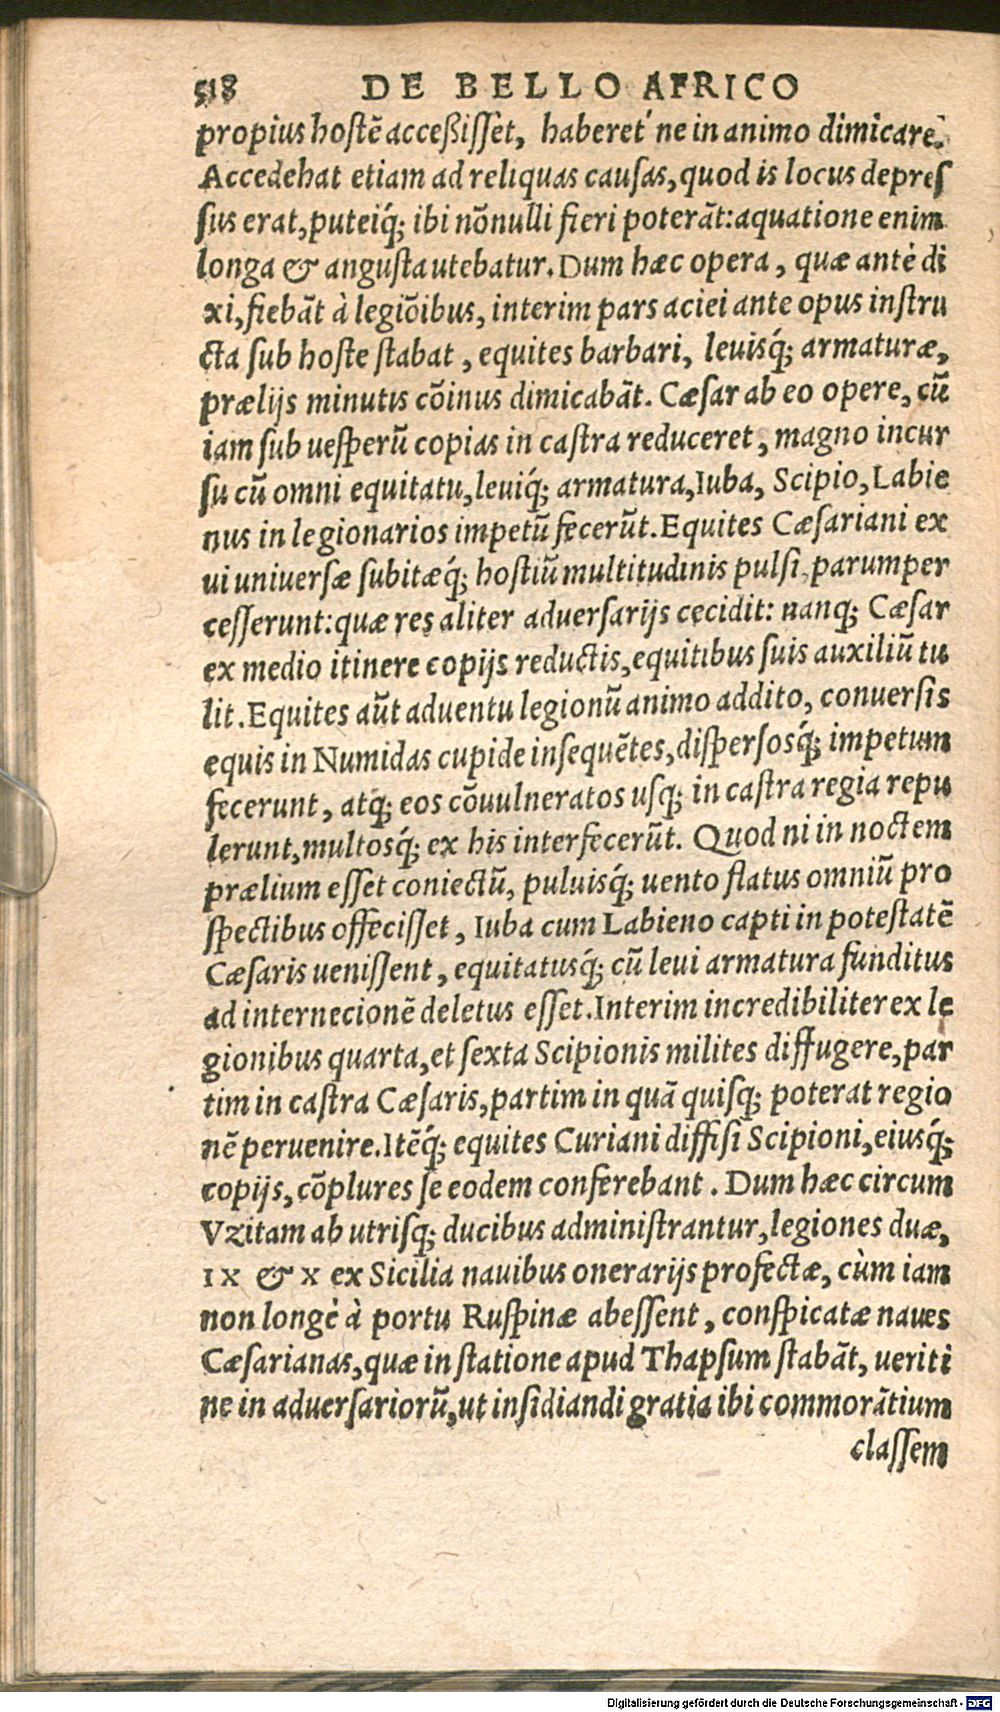 518 DE BELLO AFRICO
propius hostẽ acceßisset, haberet'ne in animo dimicare.
Accedehat etiam ad reliquas causas, quod is locus depres
sus erat, puteiq́; ibi nõnulli fieri poterãt: aquatione enim
longa & angusta utebatur. Dum hæc opera, quæ antè di
xi, fiebãt à legiõibus, interim pars aciei ante opus instru
cta sub hoste stabat, equites barbari, leuisq́; armaturæ,
prælijs minutis cõinus dimicabãt. Cæsar ab eo opere, cũ
iam sub uesperũ copias in castra reduceret, magno incur
su cũ omni equitatu, leuiq́; armatura, Iuba, Scipio, Labie
nus in legionarios impetũ fecerũt. Equites Cæsariani ex
ui uniuersæ subitæq́; hostiũ multitudinis pulsi, parumper
cesserunt: quæ res aliter aduersarijs cecidit: nanq; Cæsar
ex medio itinere copijs reductis, equitibus suis auxiliũ tu
lit. Equites aũt aduentu legionũ animo addito, conuersis
equis in Numidas cupide insequẽtes, dispersosq́; impetum
fecerunt, atq; eos cõuulneratos usq; in castra regia repu
lerunt, multosq́; ex his interfecerũt. Quod ni in noctem
prælium esset coniectũ, puluisq́; uento flatus omniũ pro
spectibus offecisset, Iuba cum Labieno capti in potestatẽ
Cæsaris uenissent, equitatusq́; cũ leui armatura funditus
ad internecionẽ deletus esset. Interim incredibiliter ex le
gionibus quarta, et sexta Scipionis milites diffugere, par
tim in castra Cæsaris, partim in quã quisq; poterat regio
nẽ peruenire. Itẽq́; equites Curiani diffisi Scipioni, eiusq́;
copijs, cõplures se eodem conferebant. Dum hæc circum
Vzitam ab utrisq; ducibus administrantur, legiones duæ,
IX & X ex Sicilia nauibus onerarijs profectæ, cùm iam
non longè à portu Ruspinæ abessent, conspicatæ naues
Cæsarianas, quæ in statione apud Thapsum stabãt, ueriti
ne in aduersariorũ, ut insidiandi gratia ibi commorãtium
classem
Digitalisierung gefördert durch die Deutsche Forschungsgemeinschaft - DFG